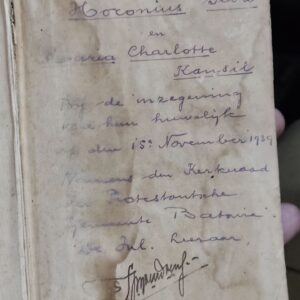 Hoconius
en
Maria Charlotte
Kansil
Bij de inzegening
van hun huwelijk
op den 15e November 1939
Namens den Kerkeraad
Protestantsche
Gemeente Batavia.
De Inl. Leeraar,